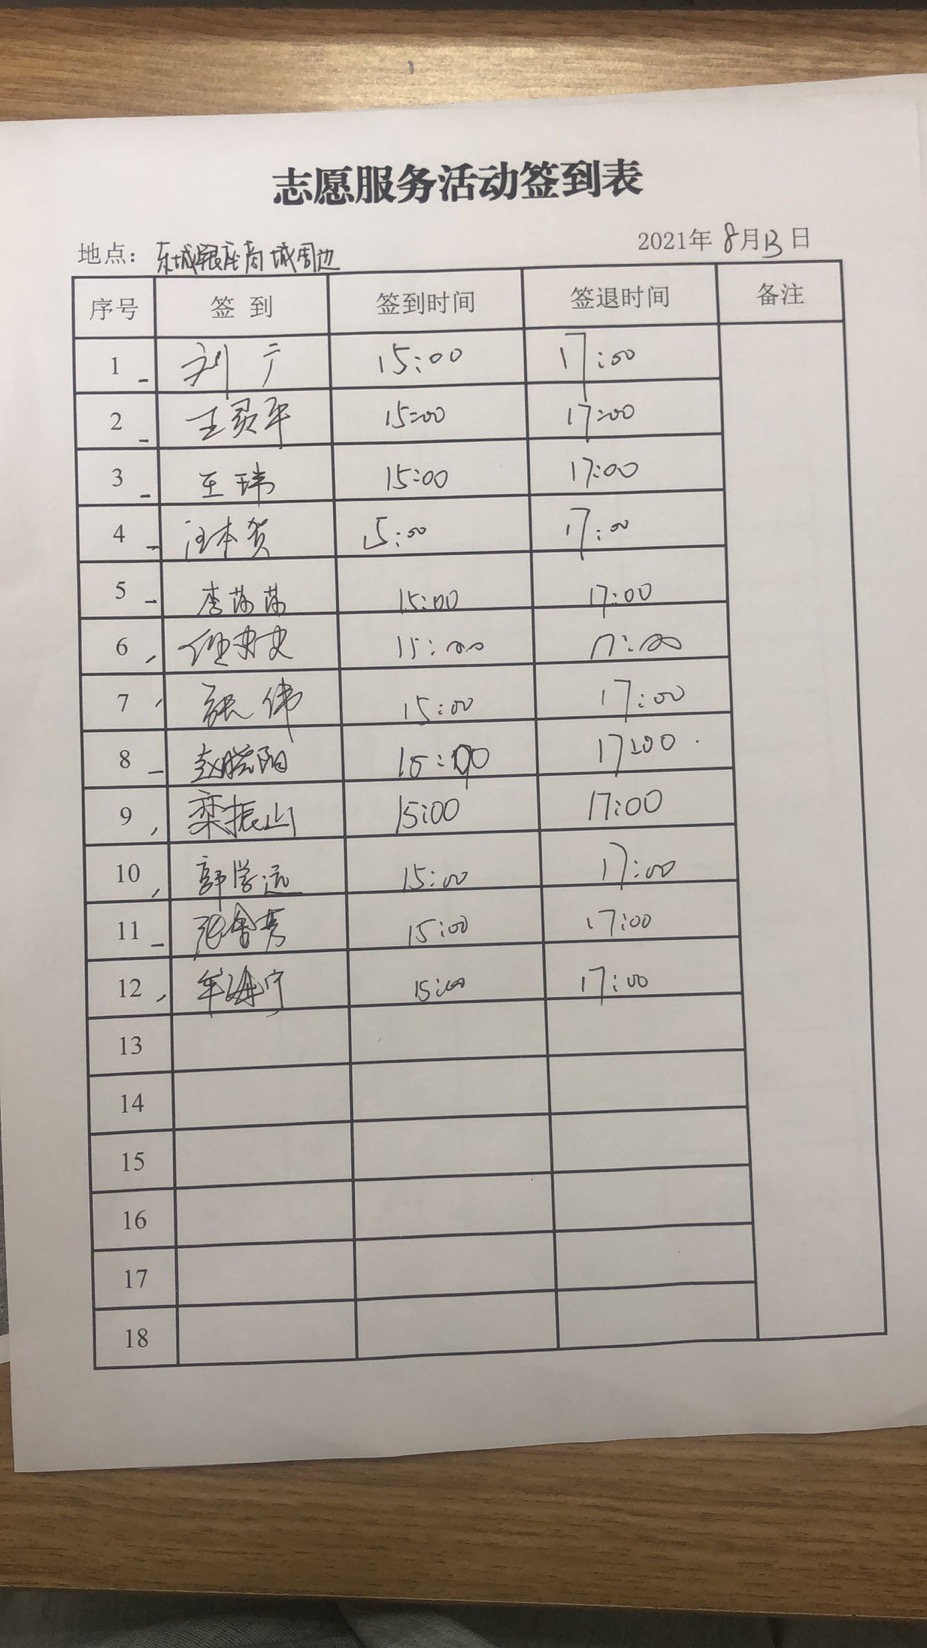 志愿服务活动签到表
地点：东城银座商城周边 2021年8月13日
序号 签到 签到时间 签退时间 备注
1 刘广 15:00 17:00
2 王灵平 15:00 17:00
3 王玮 15:00 17:00
4 汪本贺 15:00 17:00
5 李莎莎 15:00 17:00
6 15:00 17:00
7 张伟 15:00 17:00
8 赵晓阳 15:00 17:00
9 栾振山 15:00 17:00
10 郭学远 15:00 17:00
11 15:00 17:00
12 15:00 17:00
13
14
15
16
17
18